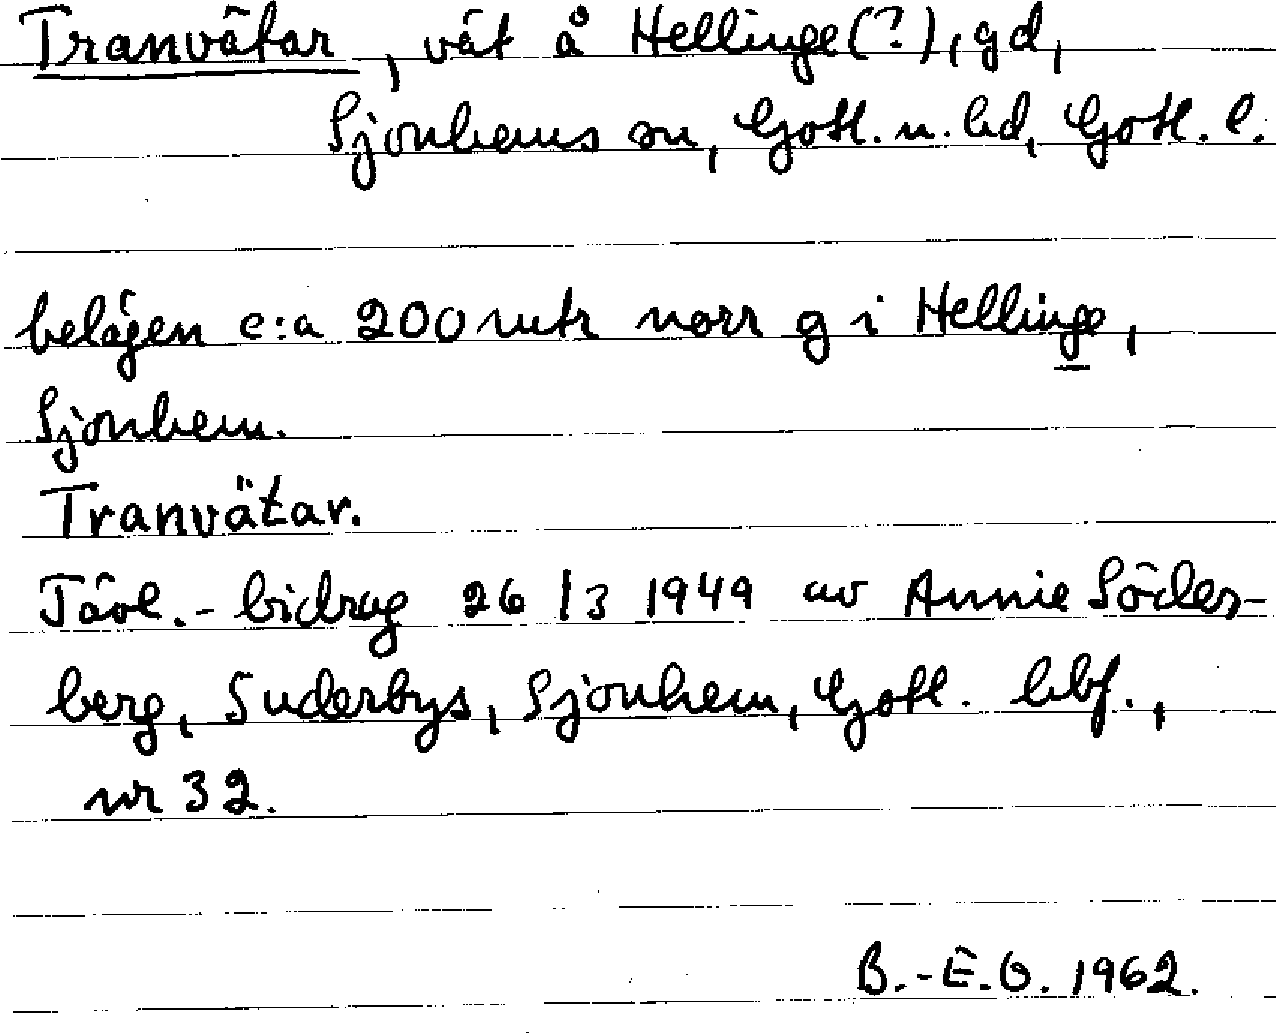 Tranvätar, vät å Hellinge(?), gd,
Sjonhems sn, Gotl. n. hd, Gotl. l.
belägen c:a 200 mtr norr g i Hellinge,
Sjonhem.
Tranvätar.
Tävl.-bidrag 26/3 1949 av Annie Söder-
berg, Suderbys, Sjonhem, Gotl. hbf.,
nr 32.
B.-E.O. 1962.